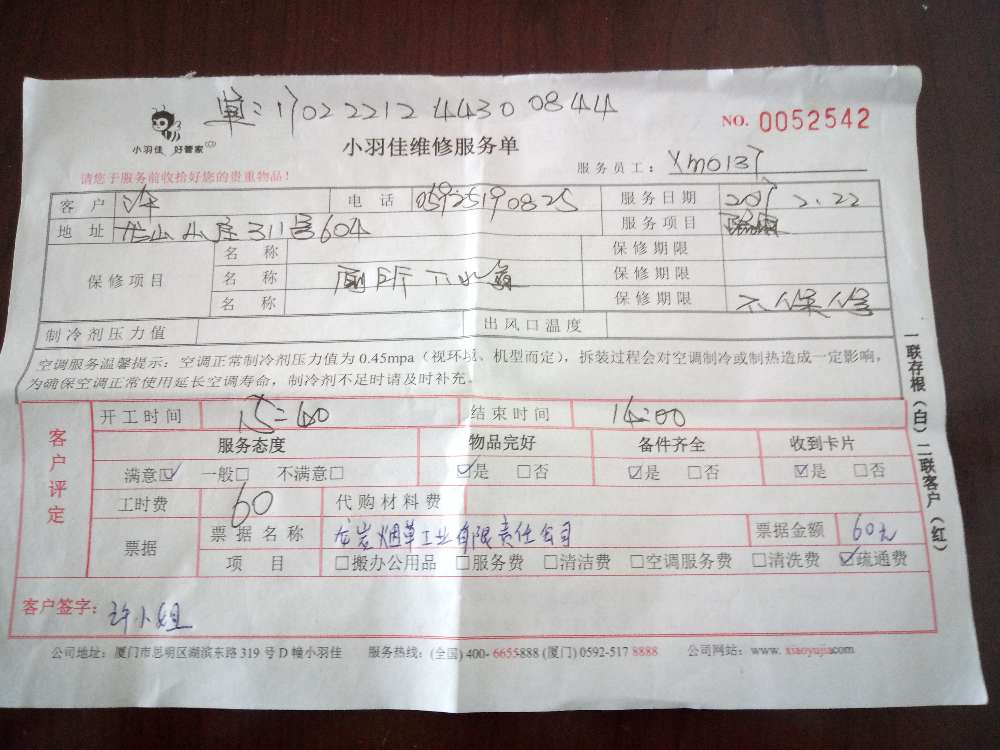 单:17022212443000844
NO. 0052542
小羽佳 好管家
小羽佳维修服务单
服务员工: Xm0137
请您于服务前收拾好您的贵重物品!
客户 许 电话 05925190825 服务日期 2017 2.22
地址 龙山小区311号604 服务项目
保修项目 名称 保修期限
名称 厕所下水道 保修期限
名称 保修期限 不保修
制冷剂压力值 出风口温度
空调服务温馨提示:空调正常制冷剂压力值为0.45mpa(视环境、机型而定),拆装过程会对空调制冷或制热造成一定影响,
为确保空调正常使用延长空调寿命,制冷剂不足时请及时补充。
客户评定
开工时间 15:40 结束时间 16:00
服务态度 物品完好 备件齐全 收到卡片
满意☑ 一般□ 不满意□ ☑是 □否 ☑是 □否 ☑是 □否
工时费 60 代购材料费
票据 票据名称 龙岩烟草工业有限责任公司 票据金额 60元
项目 □搬办公用品 □服务费 □清洁费 □空调服务费 □清洗费 ☑疏通费
客户签字: 许小姐
一联存根(白)二联客户(红)
公司地址:厦门市思明区湖滨东路319号D幢小羽佳 服务热线:(全国)400-6655888 (厦门)0592-517 8888 公司网站:www.xiaoyujia.com